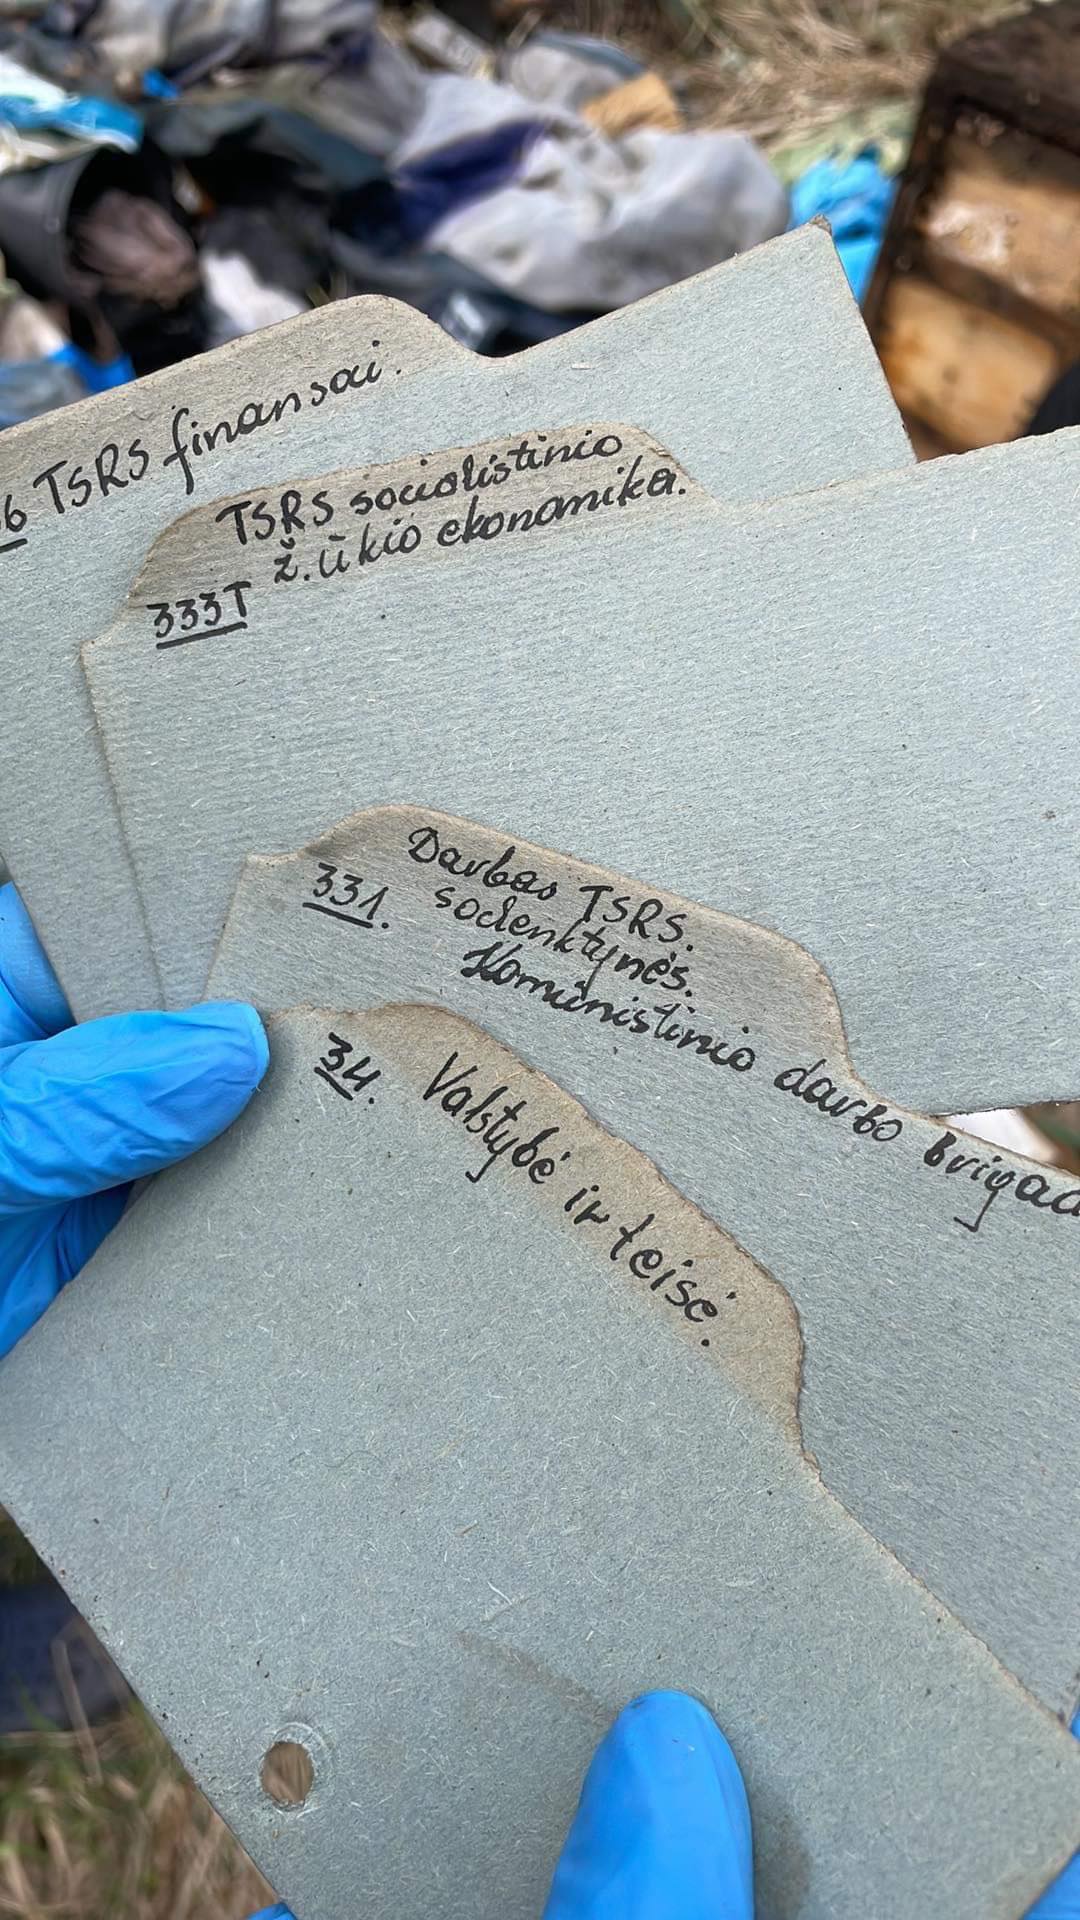 6 TSRS finansai.
TSRS socialistinio
ž. ūkio ekonomika.
333T
Darbas TSRS.
331. soclenktynės.
Komūnistinio darbo brigad
34. Valstybė ir teisė.